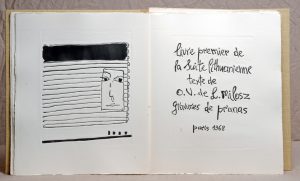 livre premier de
la suite lithuanienne
texte de
O.V. de L. Milosz
gravures de pranas
paris 1968